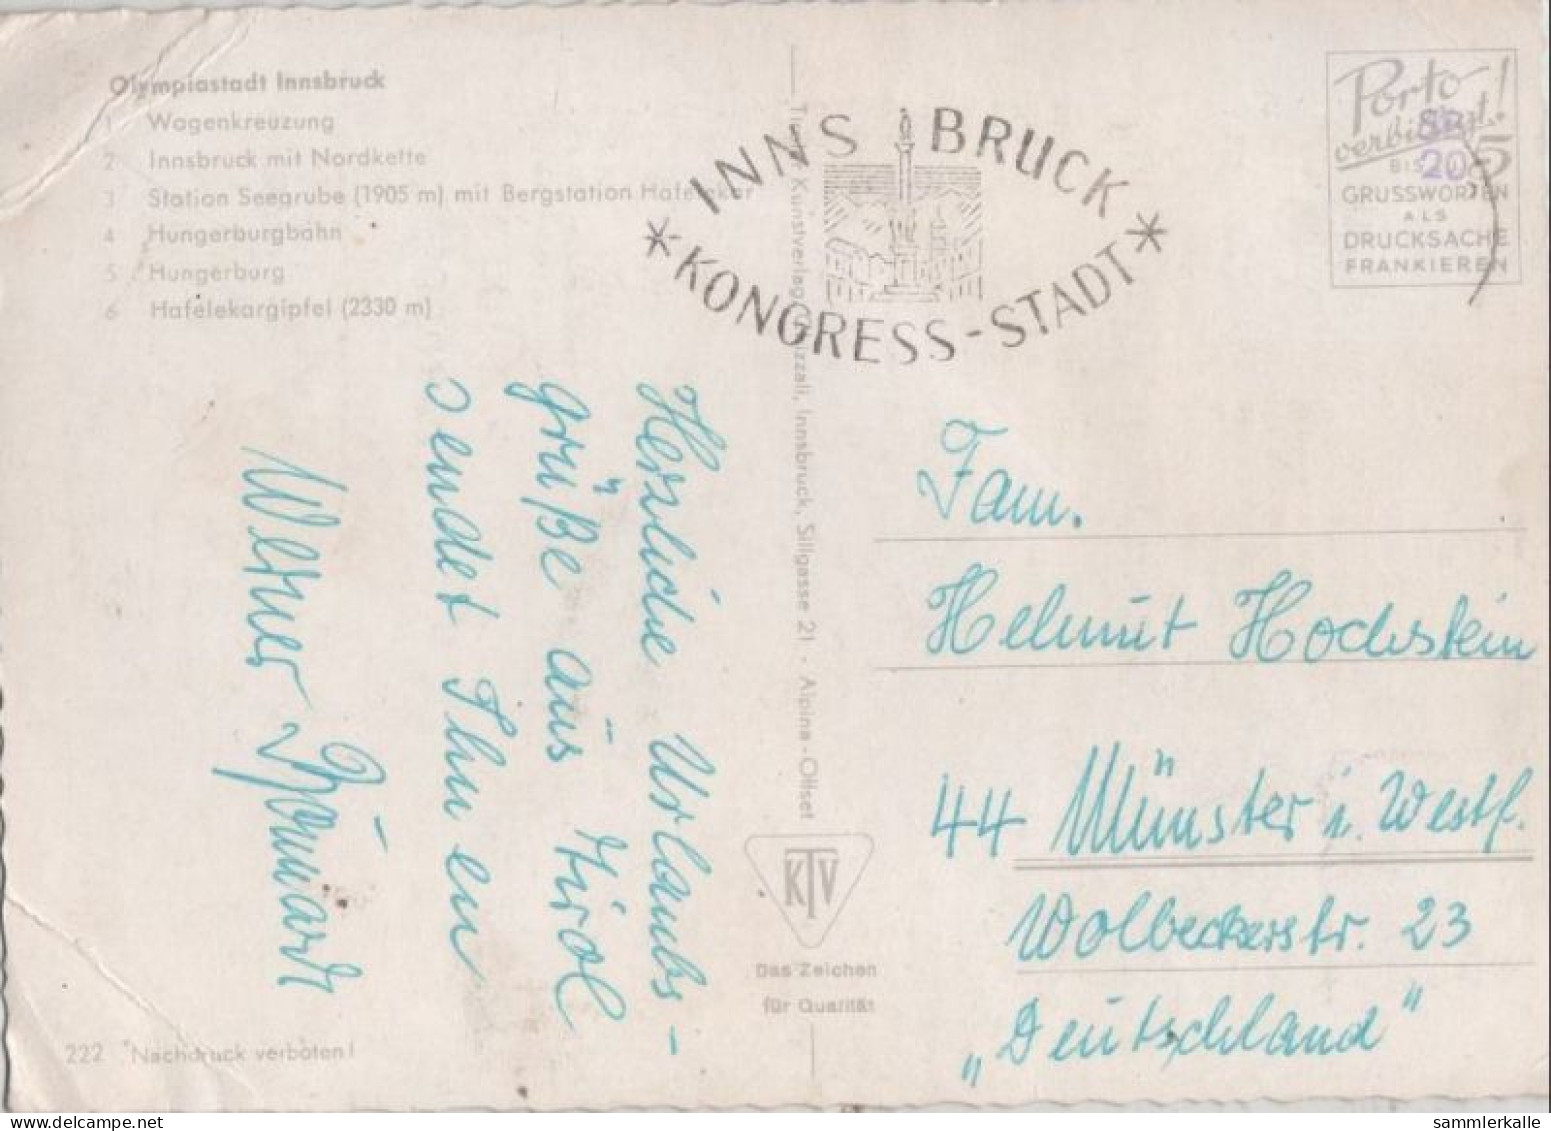 Olympiastadt Innsbruck
1 Wagenkreuzung
2 Innsbruck mit Nordkette
3 Station Seegrube (1905 m) mit Bergstation Hafelekar
4 Hungerburgbahn
5 Hungerburg
6 Hafelekargipfel (2330 m)
INNSBRUCK
* KONGRESS-STADT *
Porto
verbilligt!
BIS 5
GRUSSWORTEN
ALS
DRUCKSACHE
FRANKIEREN
SR
20
Herzliche Urlaubs-
grüße aus Tirol
sendet Ihnen
Werner
Tiroler Kunstverlag Chizzali, Innsbruck, Sillgasse 21 · Alpina-Offset
KTV
Das Zeichen
für Qualität
Fam.
Helmut Hochstein
44 Münster i. Westf.
Wolbeckerstr. 23
„Deutschland"
222 Nachdruck verboten!
sammlerkalle